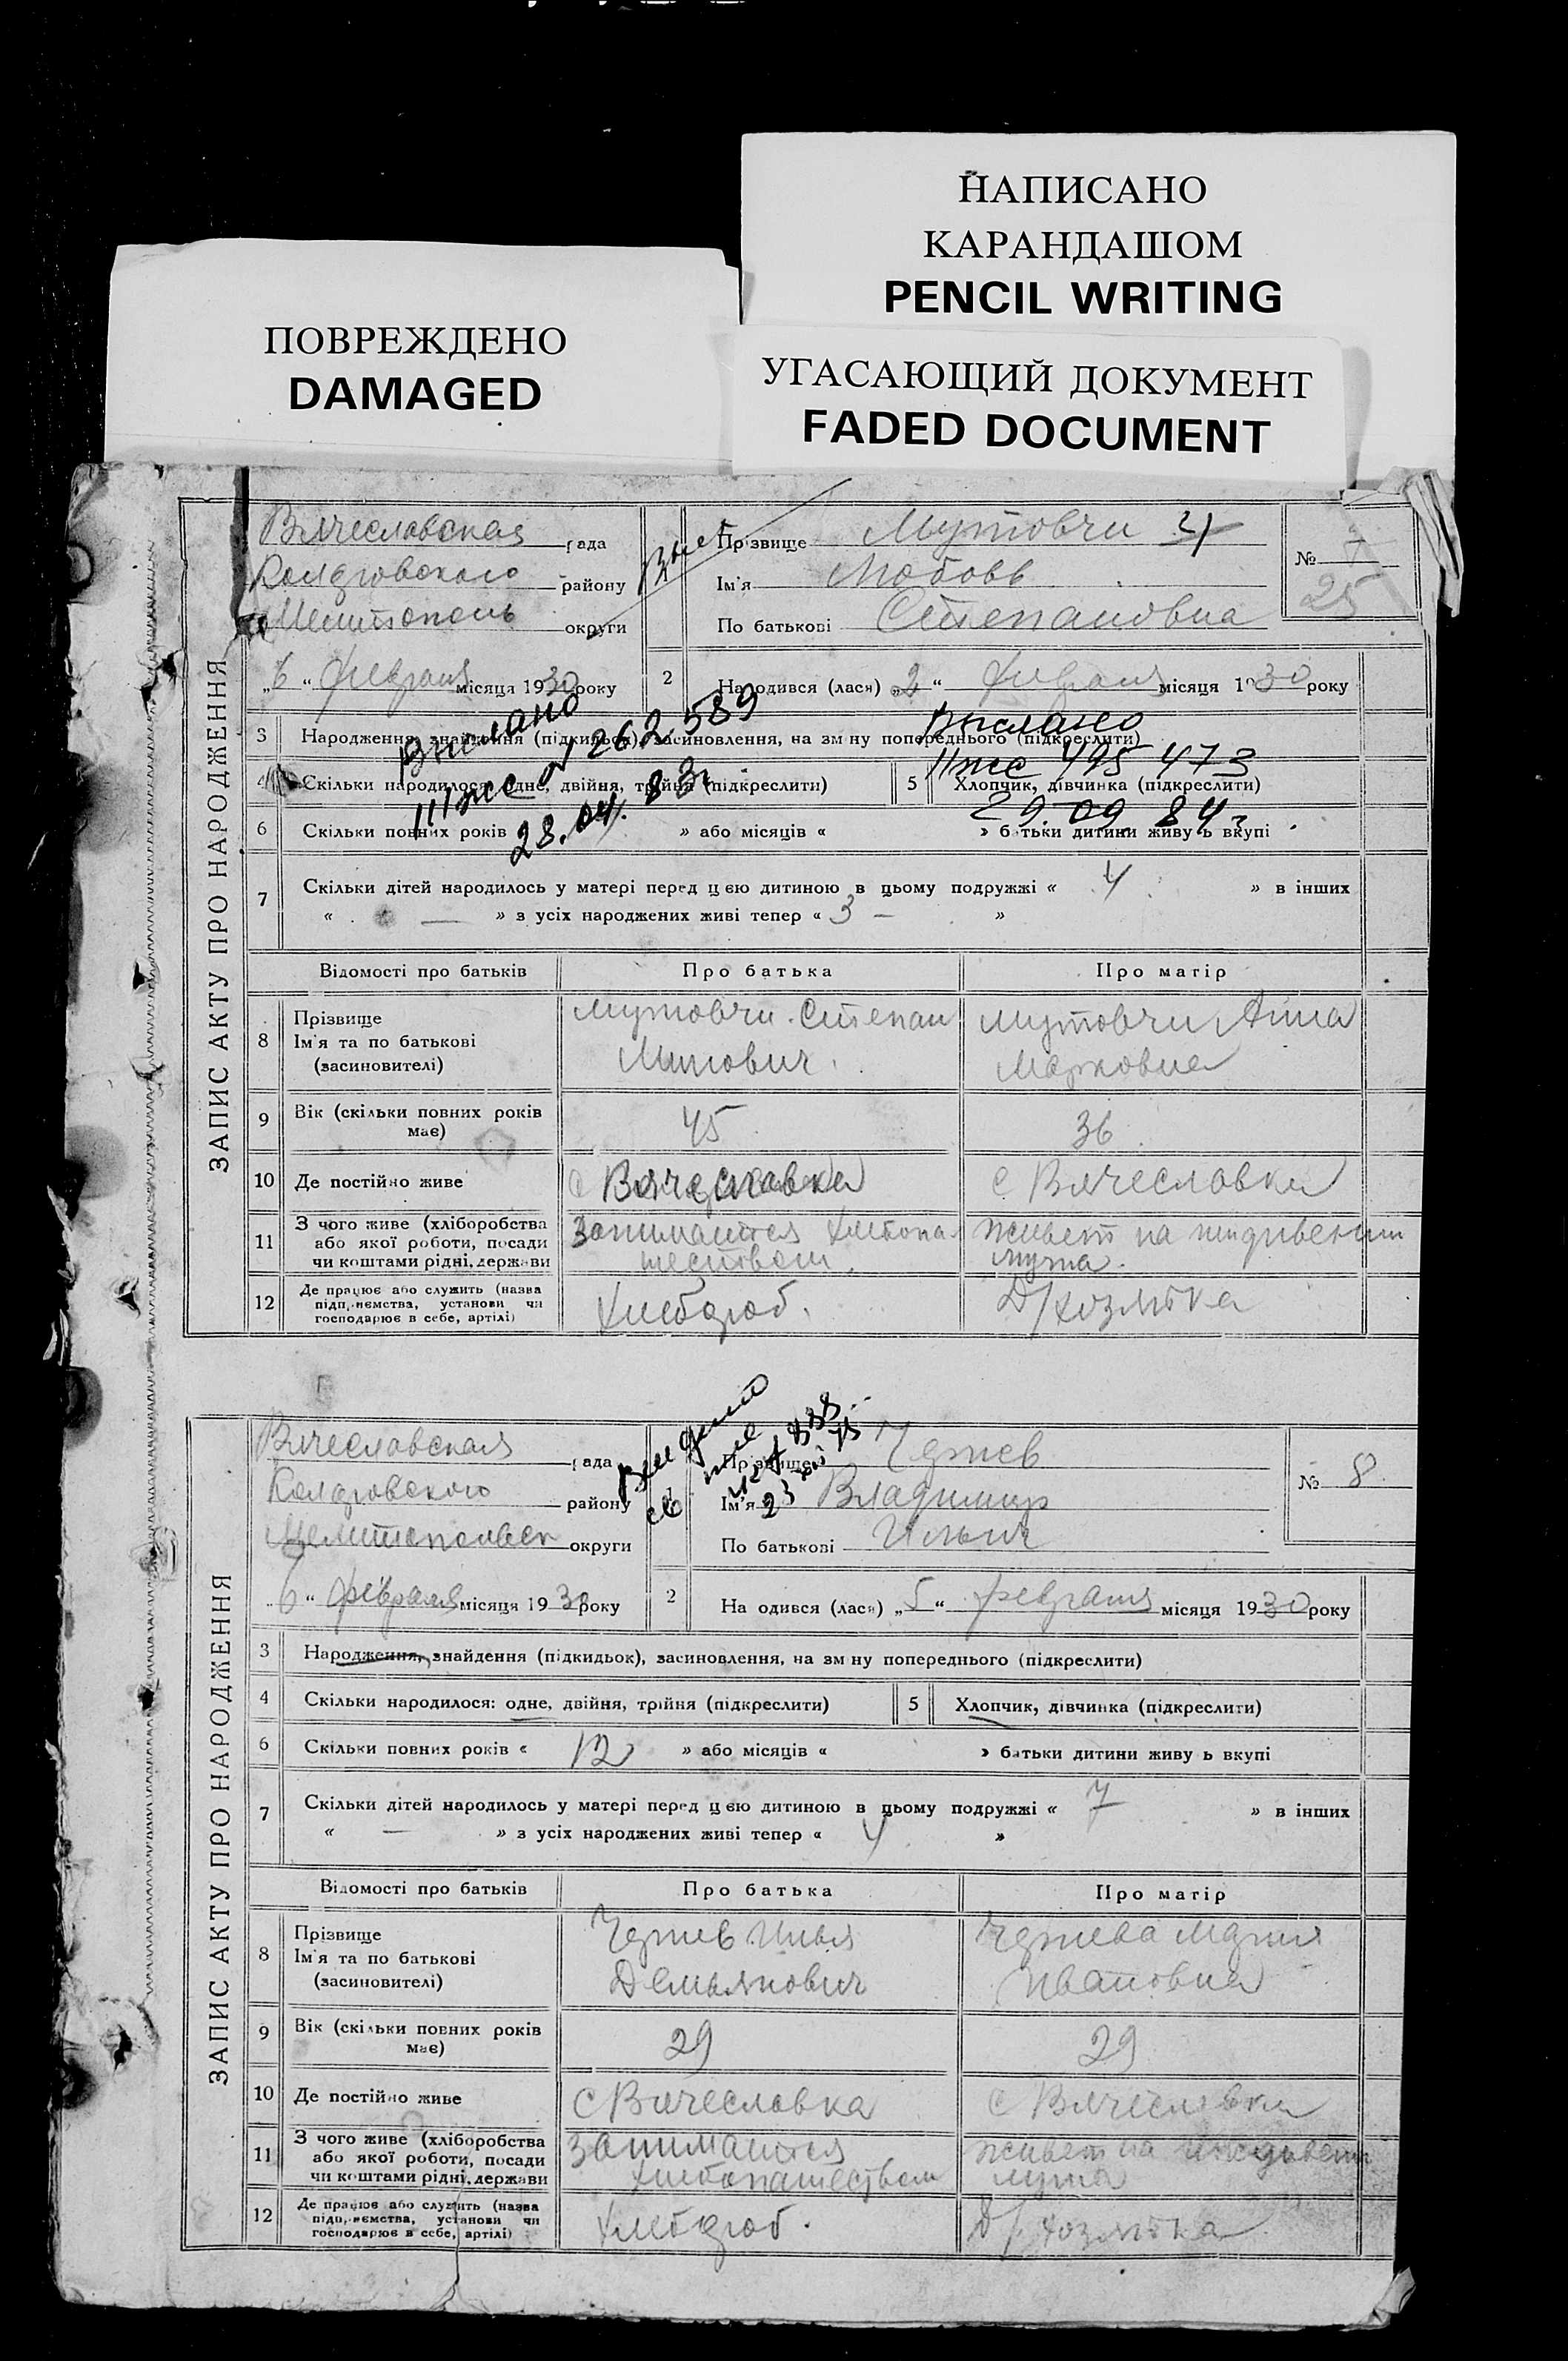 НАПИСАНО
КАРАНДАШОМ
PENCIL WRITING
ПОВРЕЖДЕНО
DAMAGED
УГАСАЮЩИЙ ДОКУМЕНТ
FADED DOCUMENT
ЗАПИС АКТУ ПРО НАРОДЖЕННЯ
Вячеславская рада
району
Мелитополь округи
"6" февраля місяця 1930 року
Прізвище Мутовчи
Ім'я Любовь
По батькові Степановна
№ 7
25
2 Народився (лася) "2" февраля місяця 1930 року
Выслано
262.589
28.04.83г
Выслано
495 473
29.09 84г
3 Народження, знайдення (підкидьок), засиновлення, на зміну попереднього (підкреслити)
4 Скільки народилося: одне, двійня, трійня (підкреслити) 5 Хлопчик, дівчинка (підкреслити)
6 Скільки повних років » або місяців « » батьки дитини живуть вкупі
7 Скільки дітей народилось у матері перед цією дитиною в цьому подружжі « 4 » в інших
« — » з усіх народжених живі тепер « 3 — »
Відомості про батьків Про батька Про матір
8 Прізвище Ім'я та по батькові (засновителі)
Мутовчи Степан
Мутовчи Анна
Марковна
9 Вік (скільки повних років має) 45 36
10 Де постійно живе с Вячеславка с Вячеславка
11 З чого живе (хліборобства або якої роботи, посади чи коштами рідні, держави
Занимается хлебопа-
шеством.
живет на иждивении
мужа.
12 Де працює або служить (назва підприємства, установи чи господарює в себе, артілі)
Хлебороб.
Д/хозяйка
ЗАПИС АКТУ ПРО НАРОДЖЕННЯ
Вячеславская рада
району
округи
"6" февраля місяця 1930 року
Прізвище Чернев
Ім'я Владимир
По батькові Ильич
№ 8
2 Народився (лася) "5" февраля місяця 1930 року
3 Народження, знайдення (підкидьок), засиновлення, на зміну попереднього (підкреслити)
4 Скільки народилося: одне, двійня, трійня (підкреслити) 5 Хлопчик, дівчинка (підкреслити)
6 Скільки повних років « 12 » або місяців « » батьки дитини живуть вкупі
7 Скільки дітей народилось у матері перед цією дитиною в цьому подружжі « 7 » в інших
« — » з усіх народжених живі тепер « 4 »
Відомості про батьків Про батька Про матір
8 Прізвище Ім'я та по батькові (засиновителі)
Чернев Илья
Демьянович
Чернева Мария
Ивановна
9 Вік (скільки повних років має) 29 29
10 Де постійно живе с Вячеславка с Вячеславка
11 З чого живе (хліборобства або якої роботи, посади чи коштами рідні, держави
Занимается
хлебопашеством
живет на иждивении
мужа
12 Де працює або служить (назва підприємства, установи чи господарює в себе, артілі)
Хлебороб.
Д/хозяйка